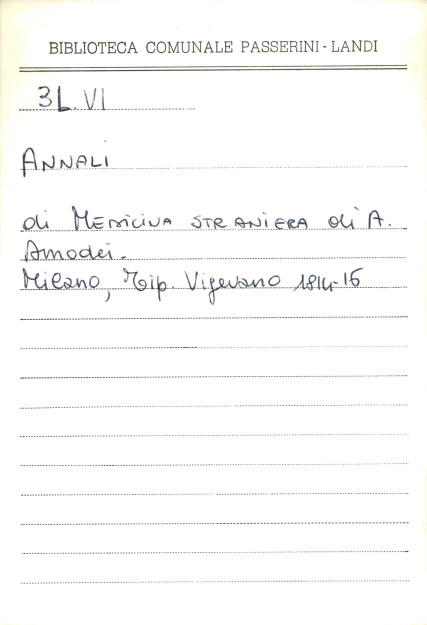 BIBLIOTECA COMUNALE PASSERINI - LANDI
3L.VI
ANNALI
di MEDICINA STRANIERA di A.
Amodei.
Milano, Tip. Vigevano 1814-16